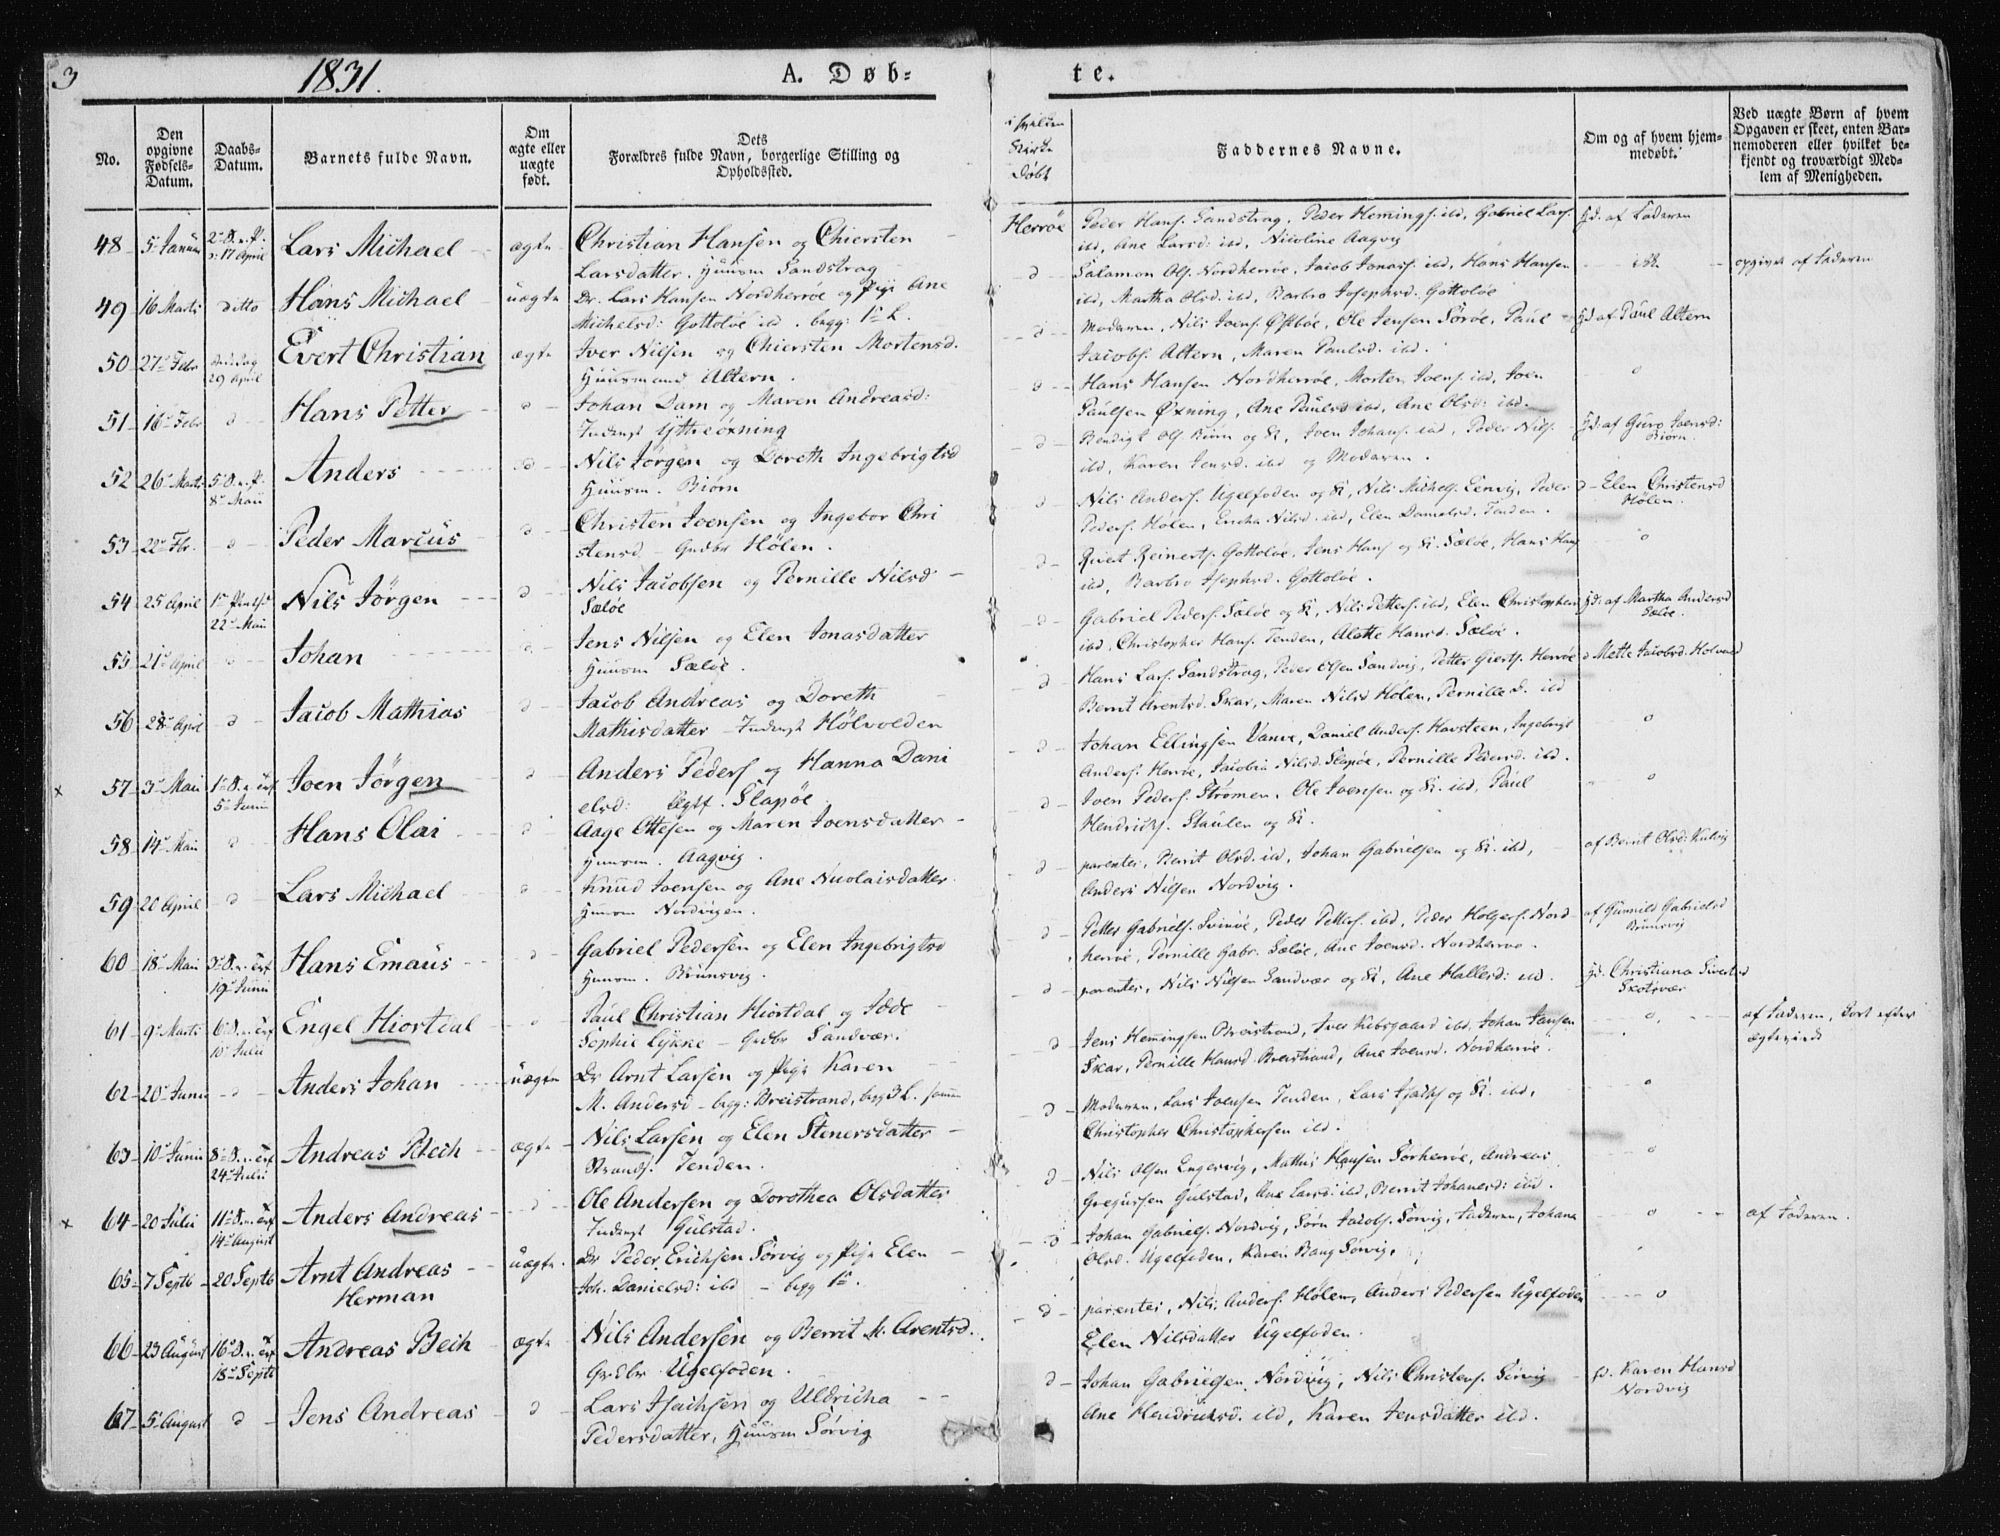 3
1831.
A. Døb-
te.
No.
Den opgivne Fødsels-Datum.
Daabs-Datum.
Barnets fulde Navn.
Om ægte eller uægte født.
Dets
Forældres fulde Navn, borgerlige Stilling og
Opholdssted.
i hvilken Kirke Døbt
Faddernes Navne.
Om og af hvem hjem-
medøbt.
Ved uægte Børn af hvem
Opgaven er skeet, enten Bar-
nemoderen eller hvilket be-
kjendt og troværdigt Med-
lem af Menigheden.
48 5 Januar 17 April Lars Michael ægte Christian Hansen og Chiersten
Larsdatter. Huusm Sandstrag
Herrøe Peder Hans. Sandstrag, Peder Hemings. ibd, Gabriel Lars.
ibd, Ane Larsd: ibd, Nicoline Aagvig
Hd. af Faderen
49 16 Marts ditto Hans Michael uægte Dr. Lars Hansen Nordherrøe og Pige Ane
Michelsd: Gottoløe ibd. begg: 1ste L.
d Salamon Ols. Nordherrøe, Jacob Jonas. ibd, Hans Hansen
ibd, Martha Olsd. ibd, Barbro Josephsd. Gottoløe
opgivet af Faderen
50 27 Febr 29 April Evert Christian ægte Iver Nilsen og Chiersten Mortensd.
Huusmand Altern.
d Moderen, Nils Joens. Østbøe, Ole Jensen Sørøe, Paul
Jacobs. Altern, Maren Paulsd. ibd.
Hd af Paul Altern
51 16 Febr d Hans Petter d Johan Dam og Maren Andreasd:
Inderst Yttreøxning
d Hans Hansen Nordherrøe, Morten Joens. ibd, Joen
Paulsen Øxning, Ane Paulsd ibd, Ane Olsd: ibd.
o
52 26 Marts 8 Maii Anders d Nils Jørgen og Doreth Ingebrigtsd
Huusm. Biørn
d Bendigt Ols Biørn og K, Joen Johans. ibd, Peder Nils.
ibd, Karen Jensd. ibd og Moderen.
Hd. af Guro Joensd:
Biørn.
53 22 Fbr. d Peder Marcus d Christen Joensen og Ingebor Chri
stensd - Grdbr Hølen.
d Nils Anders. Ugelfoden og K, Nils Michels. Eenvig, Peder
Peders. Hølen, Ericha Nilsd. ibd, Elen Danielsd. Tenden.
d Elen Christensd
Hølen.
54 25 April 22 Maii Nils Jörgen d Nils Jacobsen og Pernille Nilsd
Sæløe
d Reinerts. Gottoløe, Jens Hans og K. Sæløe, Hans Hans
ibd, Barbro Josephsd. Gottoløe.
o
55 21 April d Johan d Jens Nilsen og Elen Jonasdatter
Huusm Sæløe.
d Gabriel Peders. Sæløe og K, Nils Petters. ibd, Elen Christophers
ibd, Christopher Hans. Tenden, Alette Hansd. Sæløe.
Hd. af Martha Andersd
Sæløe.
56 28 April d Jacob Mathias d Jacob Andreas og Doreth
Mathisdatter - Inderst Hölvolden
d Hans Lars. Sandstrag, Peder Olsen Sandvig, Petter Gierts. Herrøe
Berrit Arentsd. Skar, Maren Nilsd Hølen, Pernille D. ibd
d Mette Jacobsd. Holvold
57 3 Maii 5 Junii Joen Jörgen d Anders Peders og Hanna Dani
elsd: Slapøe
d Johan Ellingsen Vanve, Daniel Anders. Havsteen, Ingebrigt
Anders. Herrøe, Jacobia Nilsd. Slapøe, Pernille Pedersd. ibd.
o
58 14 Maii d Hans Olai d Aage Ottesen og Maren Joensdatter
Huusm. Aagvig.
d Joen Peders. Strømen, Ole Joensen og K. ibd, Paul
Hendrichs. Staulen og K.
o
59 20 April d Lars Michael d Knud Joensen og Ane Nicolaisdatter
Huusm Nordvigen.
d parentes, Berrit Olsd. ibd, Johan Gabrielsen og K. ibd,
Anders Nilsen Nordvig.
af Berrit Olsd: Kulvig
60 18 Maii 19 Junii Hans Emaus d Gabriel Pedersen og Elen Ingebrigtsd
Huusm. Brunsvig.
d Petter Gabriels. Svinøe, Peder Petters. ibd, Peder Holgers. Nord-
herrøe, Pernille Gabr. Sæløe, Ane Joensd. Nordherrøe.
af Gunnild Gabrielsd
Brunsvig
61 9 Marts 10 Julii Engel Hiortdal o Paul Christian Hiortdal og
Sophie Lykke - Grdbr Sandvær.
d parentes, Nils Nilsen Sandvær og K, Ane Hallesd: ibd.
Hd. Christiana Sivertsd
Skotsvær
62 20 Junii d Anders Johan uægte Dr Arnt Larsen og Pige Karen
M. Andersd - begg: Breistrand, begg 3 L.
d Jens Hemingsen Breistrand, Iver Kibsgaard ibd, Johan Jansen
Skar, Pernille Hansd Breistrand, Ane Joensd. Nordherrøe.
o
af Faderen,
63 10 Junii 24 Julii Andreas Bech ægte Nils Larsen og Elen Stenersdatter
Strands. Tenden.
d Moderen, Lars Joensen Tenden, Lars og K. ibd,
Christopher Christophersen ibd.
o
64 20 Julii 14 August Anders Andreas d Ole Andersen og Dorothea Olsdatter
Inderst Gulstad.
d Nils Olsen Engesvig, Mathis Hansen Sørherrøe, Andreas
Gregusen Gulstad, Ane Larsd: ibd, Berrit Johanesd: ibd.
o
65 7 Septb 20 Septb Arnt Andreas
Herman uægte Dr Peder Erichsen Sørvig og Pige Elen
Joh. Danielsd: ibd - begg 1ste.
d Johan Gabriels. Nordvig, Sørn Jacobs. Sørvig, Faderen, Johana
Olsd. Ugelfoden, Karen Bang Sørvig,
o
af Faderen.
66 23 August 18 Septb Andreas Bech ægte Nils Andersen og Berrit M. Arentsd.
Grdbr Ugelfoden.
d parentes, Nils Anders. Hølen, Anders Pedersen Ugelfoden
Elen Nilsdatter Ugelfoden.
o
67 5 August d Jens Andreas d Lars Isachsen og Uldricha
Pedersdatter, Huusm Sørvig
d Johan Gabrielsen Nordvig, Nils Christens. Sørvig
Ane Hendrichsd. ibd, Karen Jensdatter ibd.
Hd. Karen Hansd
Nordvig